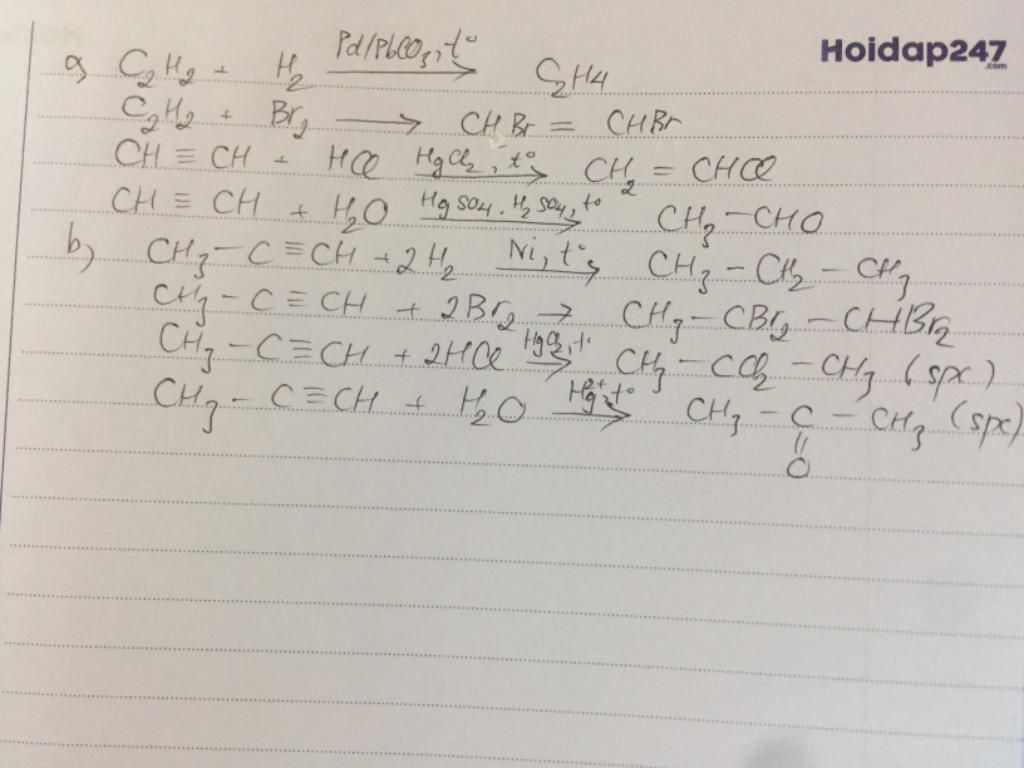 Hoidap247
.com
a) C₂H₂ + H₂ Pd/PbCO₃, t° → C₂H₄
C₂H₂ + Br₂ → CHBr = CHBr
CH ≡ CH + HCl HgCl₂, t° → CH₂ = CHCl
CH ≡ CH + H₂O HgSO₄. H₂SO₄, t° → CH₃ – CHO
b) CH₃ – C ≡ CH + 2H₂ Ni, t° → CH₃ – CH₂ – CH₃
CH₃ – C ≡ CH + 2Br₂ → CH₃ – CBr₂ – CHBr₂
CH₃ – C ≡ CH + 2HCl HgCl₂, t° → CH₃ – CCl₂ – CH₃ (spc)
CH₃ – C ≡ CH + H₂O Hg²⁺, t° → CH₃ – C – CH₃ (spc)
||
O